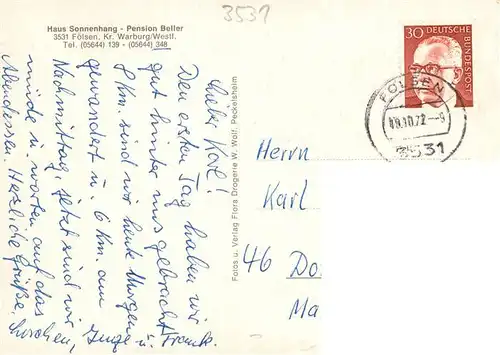 3531
Haus Sonnenhang - Pension Beller
3531 Fölsen, Kr. Warburg/Westf.
Tel. (05644) 139 - (05644) 348
Lieber Karl!
Den ersten Tag haben wir
gut hinter uns gebracht.
8 Km. sind wir heute Morgen
gewandert u. 6 Km. am
Nachmittag. Jetzt sind wir
müde u. warten auf das
Abendessen. Herzliche Grüße,
Inge u. Frank.
Fotos u. Verlag Flora Drogerie W. Wolf, Peckelsheim
30 DEUTSCHE BUNDESPOST
FÖLSEN
10.72.-9
3531
Herrn
Karl
46 Do
Ma